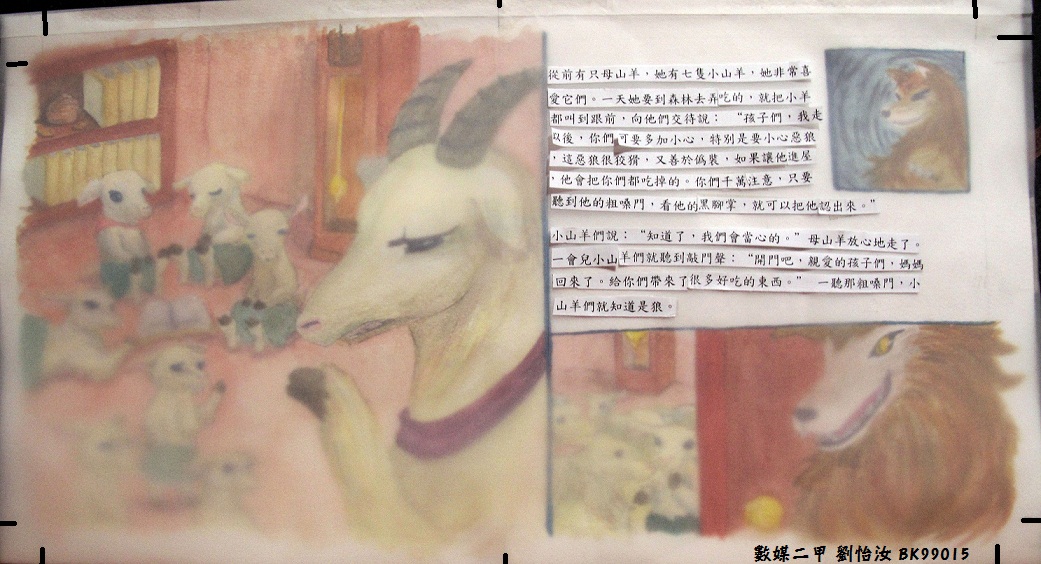 從前有只母山羊，她有七隻小山羊，她非常喜
愛它們。一天她要到森林去弄吃的，就把小羊
都叫到跟前，向他們交待說：“孩子們，我走
以後，你們可要多加小心，特別是要小心惡狼
，這惡狼很狡猾，又善於偽裝，如果讓他進屋
，他會把你們都吃掉的。你們千萬注意，只要
聽到他的粗嗓門，看他的黑腳掌，就可以把他認出來。”
小山羊們說：“知道了，我們會當心的。”母山羊放心地走了。
一會兒小山羊們就聽到敲門聲：“開門吧，親愛的孩子們，媽媽
回來了。給你們帶來了很多好吃的東西。” 一聽那粗嗓門，小
山羊們就知道是狼。
數媒二甲 劉怡汝 BK99015